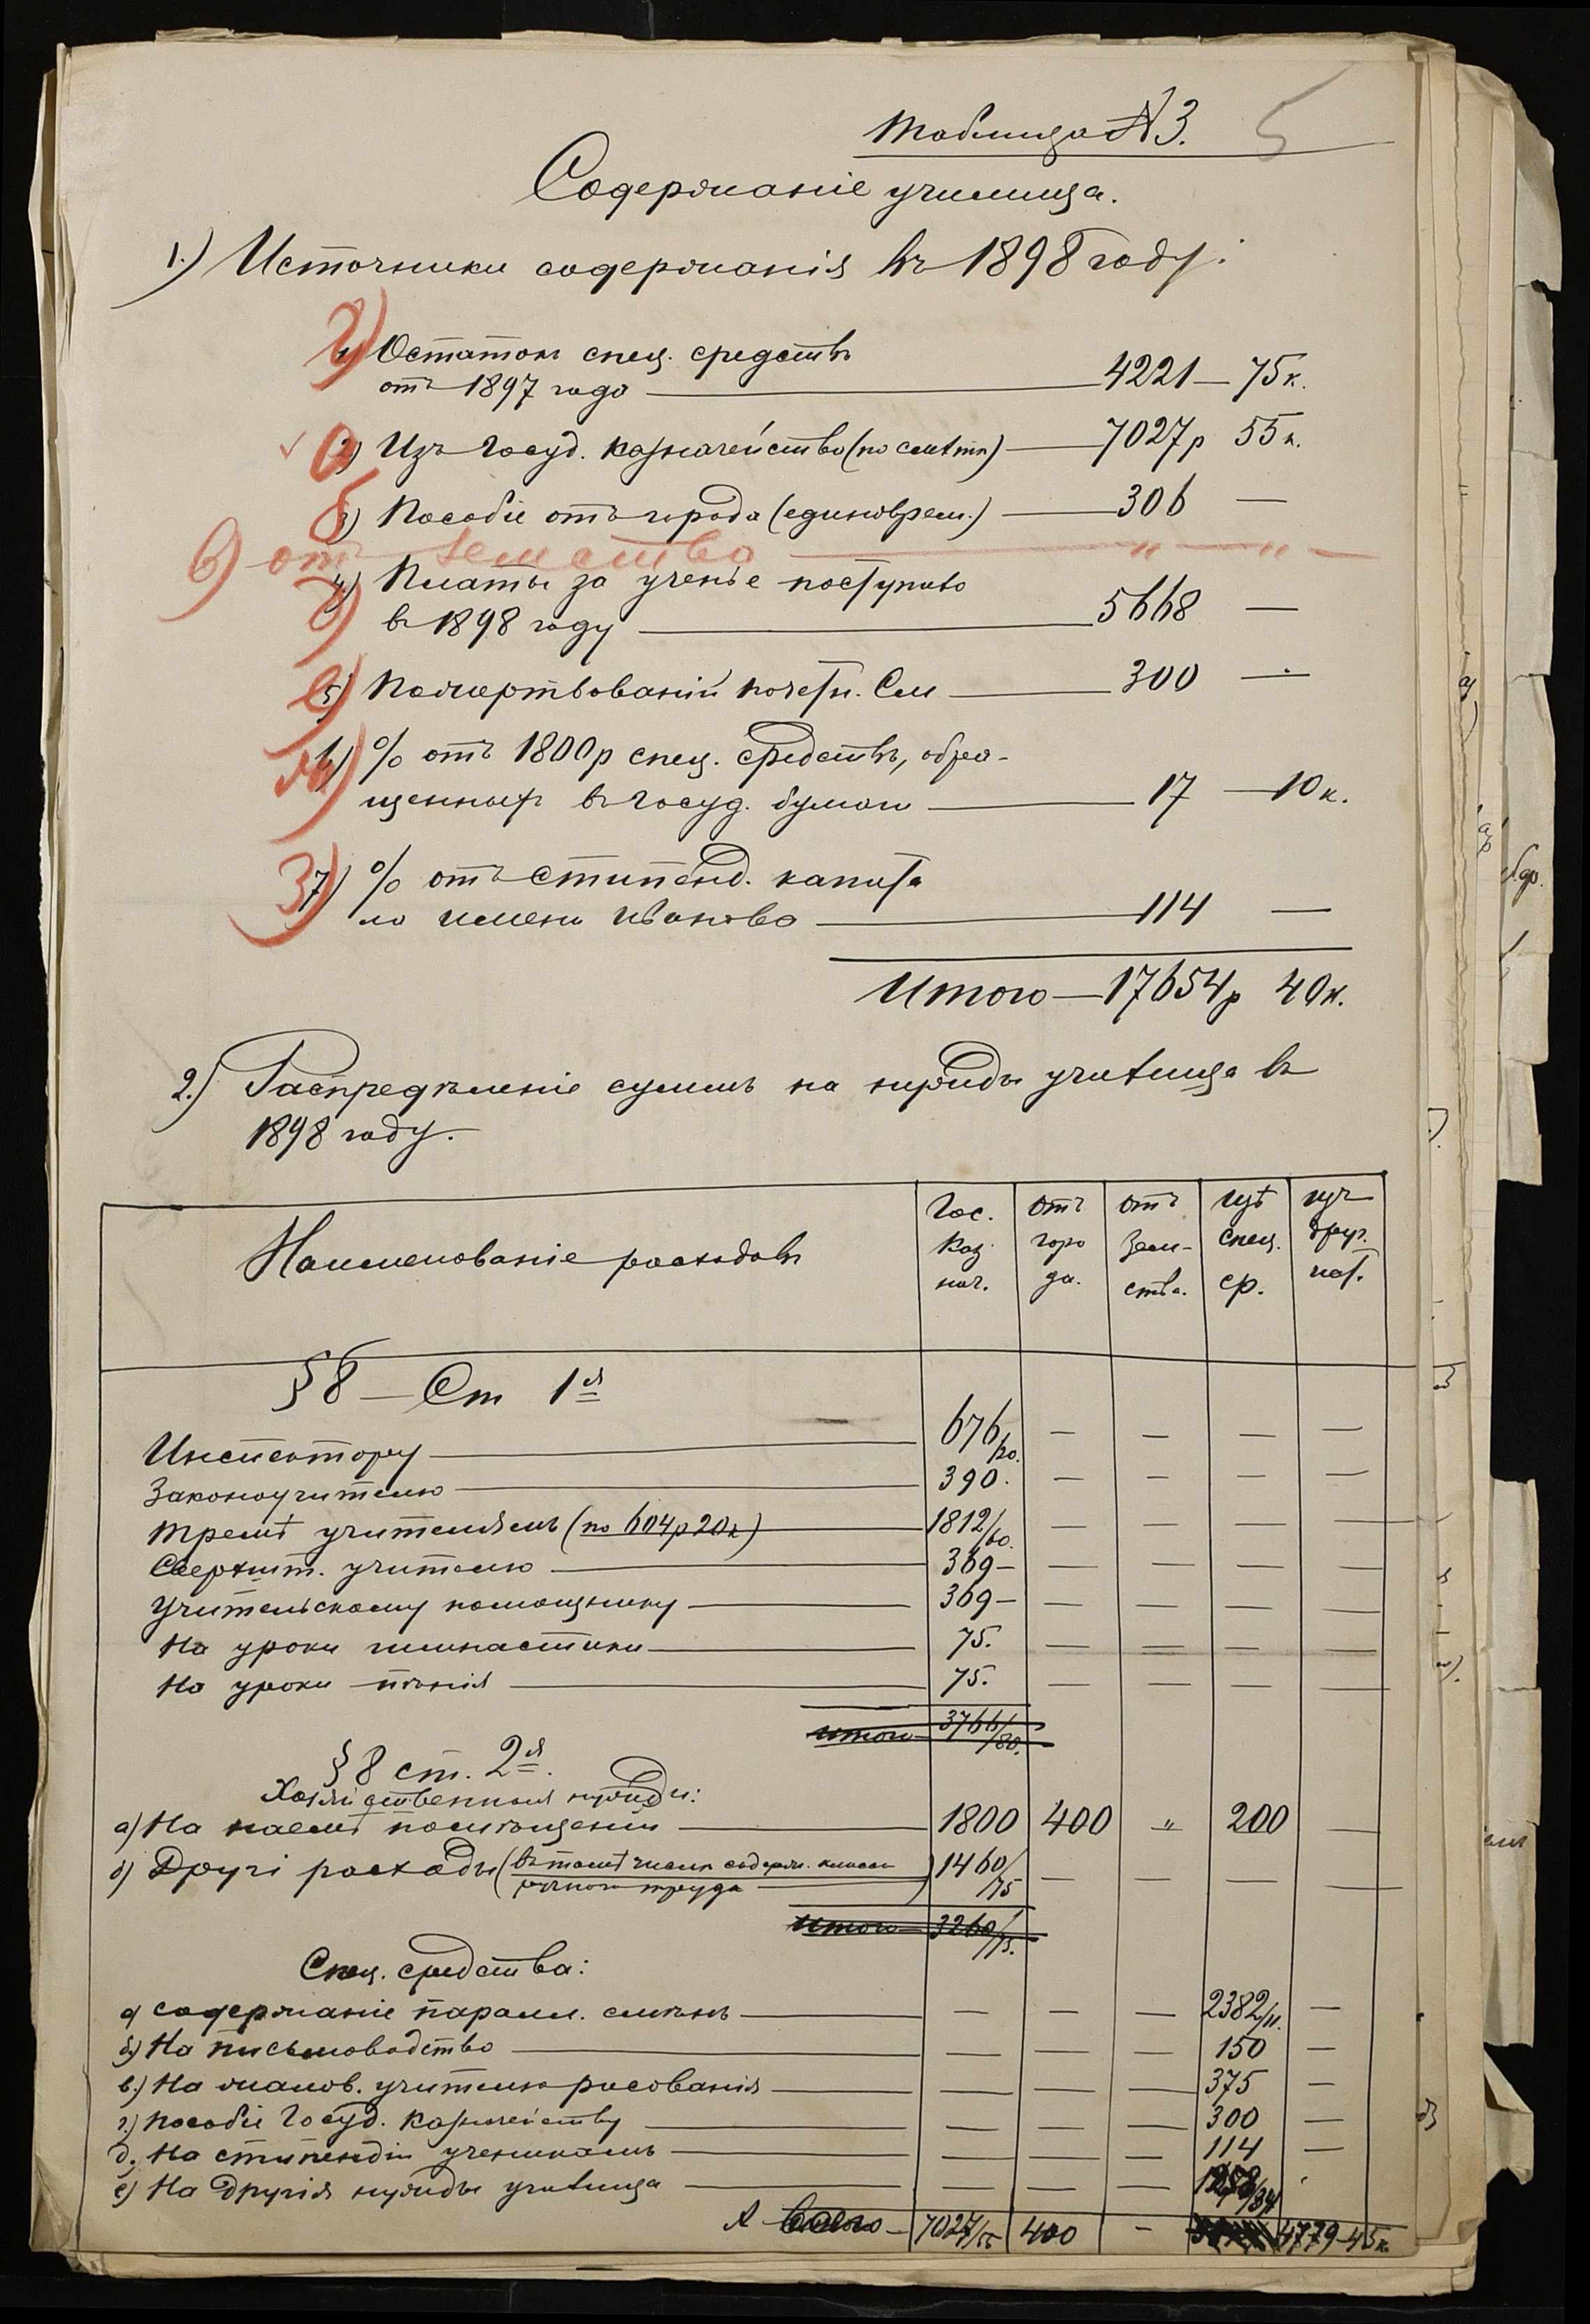 Таблица №3. 5
Содержаніе училища.
1.) Источники содержанія въ 1898 году:
г) 1) Остатокъ спец. средствъ
отъ 1897 года — 4221 — 75 к.
а) 2) Изъ Госуд. казначейства (по смѣтѣ) — 7027 р 55 к.
б) 3) Пособіе отъ города (единоврем.) — 306 —
в) отъ земства — " — " —
д) 4) Платы за ученье поступило
въ 1898 году — 5668 —
е) 5) Пожертвованій почетн. См — 300 —
ж) 6) % отъ 1800 р спец. средствъ, обра-
щенныхъ въ госуд. бумаги — 17 — 10 к.
з) 7) % отъ стипенд. капита
ла имени Иванова — 114 —
Итого — 17654 р 40 к.
2.) Распредѣленіе суммъ на нужды училища въ
1898 году.
Наименованіе расходовъ
Гос. Каз нач.
Отъ горо да.
Отъ Зем- ства.
Изъ спец. ср.
изъ друг. ист.
§ 8 — Ст 1я
Инспектору — 676/20. — — — —
Законоучителю — 390. — — — —
Тремъ учителямъ (по 604 р 20 к) — 1812/60. — — — —
Сверхшт. учителю — 369 — — — — —
Учительскому помощнику — 369 — — — — —
На уроки гимнастики — 75. — — — —
На уроки пѣнія — 75. — — — —
Итого — 3766/80.
§ 8 ст. 2я.
Хозяйственныя нужды:
а) На наемъ помѣщенія — 1800 400 " 200 —
б) Другіе расходы (въ томъ числѣ содерж. класса
ручного труда — ) 1460/75 — — — —
Итого — 3260/75.
Спец. средства:
а) содержаніе паралл. смѣнъ — — — — 2382/11. —
б.) На письмоводство — — — — 150 —
в.) На жалов. учителю рисованія — — — — 375 —
г.) Пособіе Госуд. Казначейству — — — — 300 —
д.) На стипендіи ученикамъ — — — — 114 —
е) На другія нужды училища — — — — 1258/34
А Всего — 7027/55 400 — 4779-45 к.